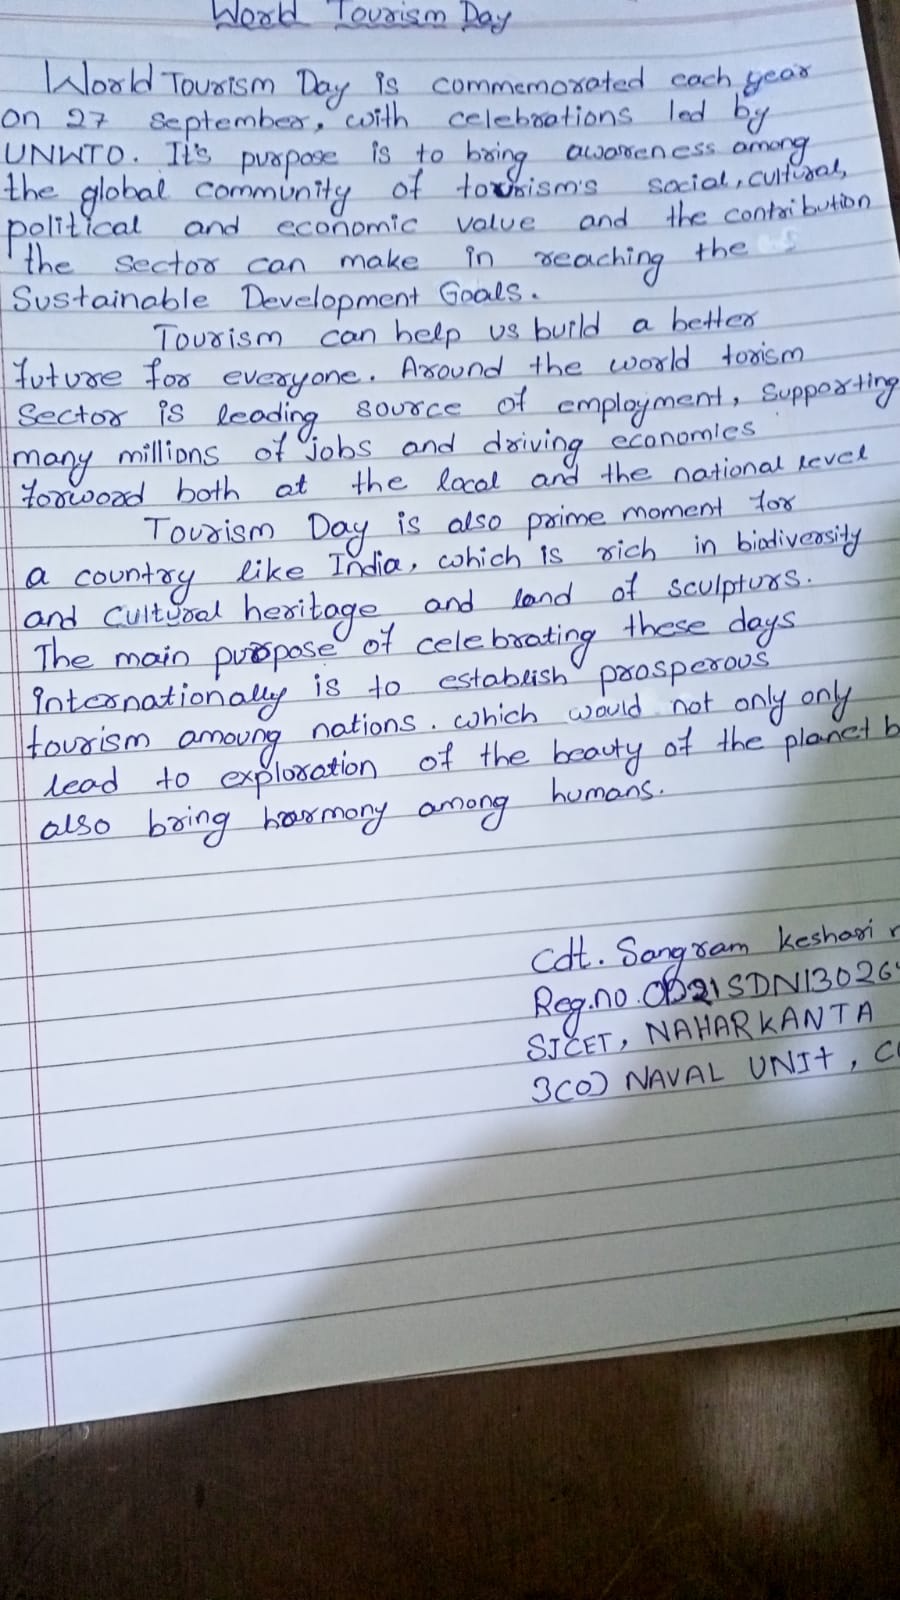 World Tourism Day
World Tourism Day is commemorated each year
on 27 September, with celebrations led by
UNWTO. It's purpose is to bring awareness among
the global community of tourism's social, cultural,
political and economic value and the contribution
the sector can make in reaching the
Sustainable Development Goals.
Tourism can help us build a better
future for everyone. Around the world torism
Sector is leading source of employment, supporting
many millions of jobs and driving economies
forwoad both at the local and the national level
Tourism Day is also prime moment for
a country like India, which is rich in biodiversity
and cultural heritage and land of sculpturs.
The main purpose of celebrating these days
internationally is to establish prosperous
tourism amoung nations. which would not only only
lead to exploration of the beauty of the planet b
also bring harmony among humans.
Cdt. Sangram keshari
Reg.no. OD21SDN13026
SJCET, NAHARKANTA
3(O) NAVAL UNIt,